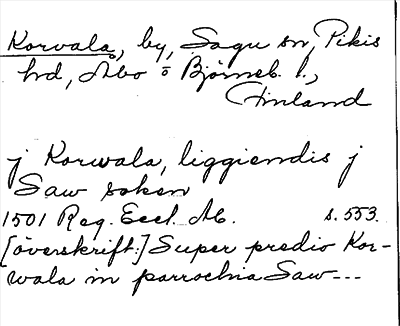 Korvala, by, Sagu sn, Pikis
hd, Åbo o Björneb. l.,
Finland
j Korwala, liggiendis j
Saw soken
1501 Reg. Eccl. Ab. s. 553.
[överskrift:] Super predio Kor-
wala in parrochia Saw---